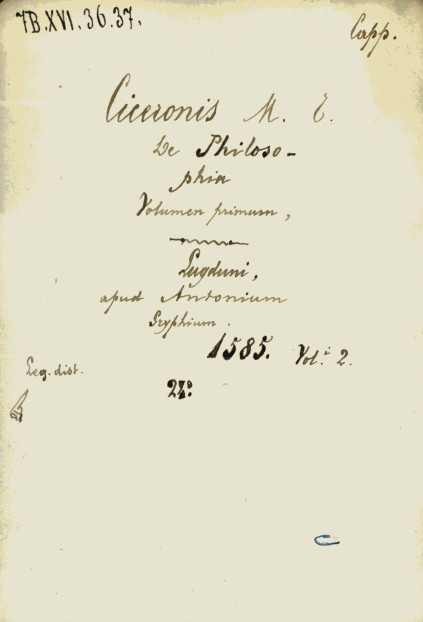 7B.XVI.36.37.
Capp.
Ciceronis M. T.
De Philoso-
phia
Volumen primum,
Lugduni,
apud Antonium
Gryphium.
1585. Vol.i 2.
Leg. dist.